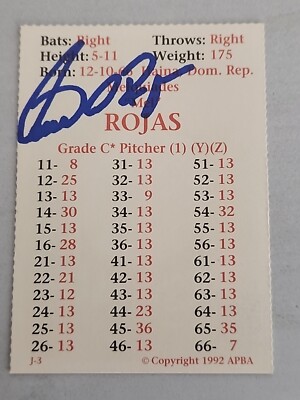 Bats: Right Throws: Right
Height: 5-11 Weight: 175
Born: 12-10-66 Haina, Dom. Rep.
Melquiades
"Mel"
ROJAS
Grade C* Pitcher (1) (Y)(Z)
11- 8 31- 13 51- 13
12- 25 32- 13 52- 13
13- 13 33- 9 53- 13
14- 30 34- 13 54- 32
15- 13 35- 13 55- 13
16- 28 36- 13 56- 13
21- 13 41- 13 61- 13
22- 21 42- 13 62- 13
23- 12 43- 13 63- 13
24- 13 44- 13 64- 13
25- 13 45- 36 65- 35
26- 13 46- 13 66- 7
J-3 © Copyright 1992 APBA